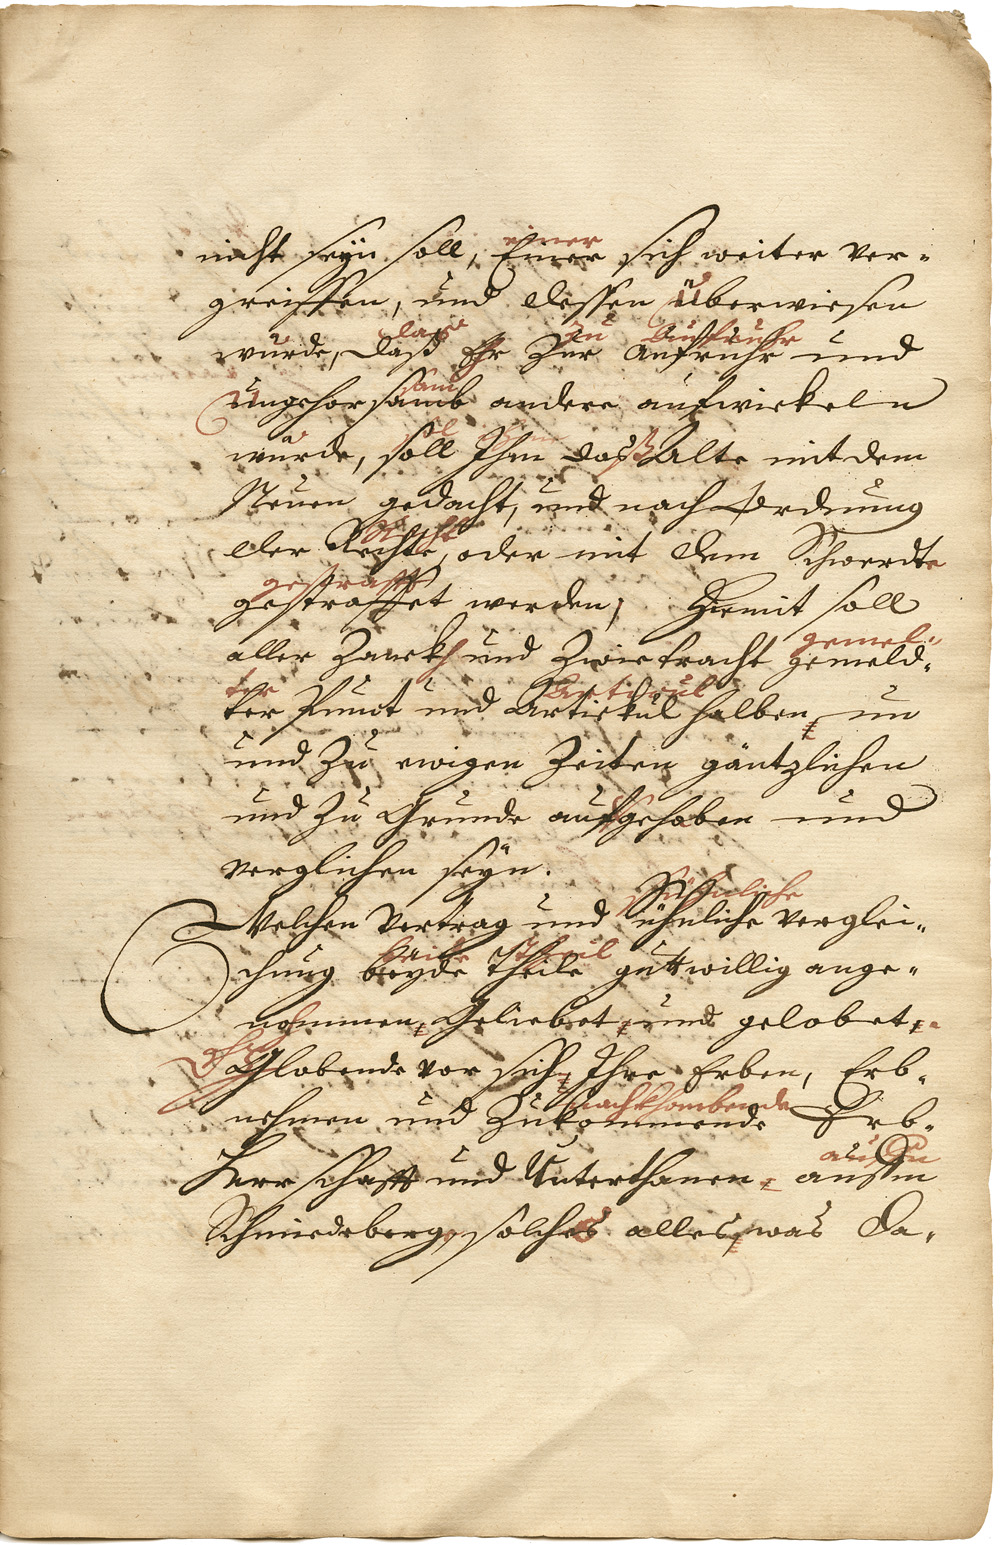 nicht seÿn soll, Einer sich weiter ver-
einer
greiffen, und dessen überwiesen
würde, daß Er Zur Aufruhr und
das zu Auffruhr
Ungehorsamb andere aufwickeln
sam
würde, soll Ihm daß Alte mit dem
sol
Neuen gedacht, und nach Ordnung
der Rechte, oder mit dem Schwerdte
Recht
gestraffet werden; Hiemit soll
gestrafft
aller Zanckh und Zwietracht gemeld-
gemel-
ter Punct und Artickul halben, nu
ter Articul
und Zu ewigen Zeiten gäntzlichen
und Zu Grunde aufgehoben und
verglichen seÿn.
Welchen Vertrag und Sühnliche verglei-
Sühnliche
chung beyde theile guttwillig ange-
baide theil
nohmmen, Geliebet, und gelobet,
Globende vor sich, Ihre Erben, Erb-
nehmen und Zukommende Erb-
nachkhombende
Herrschafft und Unterthanen, aufm
auf
Schmiedeberg, solches alles, was Da-